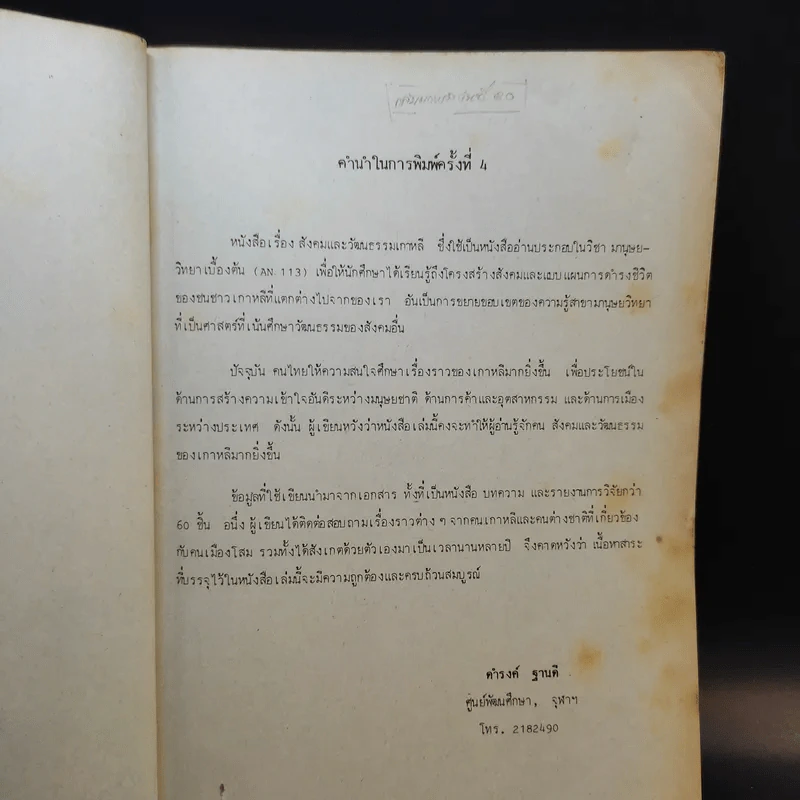 คำนำในการพิมพ์ครั้งที่ 4
หนังสือเรื่อง สังคมและวัฒนธรรมเกาหลี ซึ่งใช้เป็นหนังสืออ่านประกอบในวิชา มานุษย-
วิทยาเบื้องต้น (AN 113) เพื่อให้นักศึกษาได้เรียนรู้ถึงโครงสร้างสังคมและแบบแผนการดำรงชีวิต
ของชนชาวเกาหลีที่แตกต่างไปจากของเรา อันเป็นการขยายขอบเขตของความรู้สาขามานุษยวิทยา
ที่เป็นศาสตร์ที่เน้นศึกษาวัฒนธรรมของสังคมอื่น
ปัจจุบัน คนไทยให้ความสนใจศึกษาเรื่องราวของเกาหลีมากยิ่งขึ้น เพื่อประโยชน์ใน
ด้านการสร้างความเข้าใจอันดีระหว่างมนุษยชาติ ด้านการค้าและอุตสาหกรรม และด้านการเมือง
ระหว่างประเทศ ดังนั้น ผู้เขียนหวังว่าหนังสือเล่มนี้คงจะทำให้ผู้อ่านรู้จักคน สังคมและวัฒนธรรม
ของเกาหลีมากยิ่งขึ้น
ข้อมูลที่ใช้เขียนนำมาจากเอกสาร ทั้งที่เป็นหนังสือ บทความ และรายงานการวิจัยกว่า
60 ชิ้น อนึ่ง ผู้เขียนได้ติดต่อสอบถามเรื่องราวต่าง ๆ จากคนเกาหลีและคนต่างชาติที่เกี่ยวข้อง
กับคนเมืองโสม รวมทั้งได้สังเกตด้วยตัวเองมาเป็นเวลานานหลายปี จึงคาดหวังว่า เนื้อหาสาระ
ที่บรรจุไว้ในหนังสือเล่มนี้จะมีความถูกต้องและครบถ้วนสมบูรณ์
ดำรงค์ ฐานดี
ศูนย์พัฒนศึกษา, จุฬาฯ
โทร. 2182490